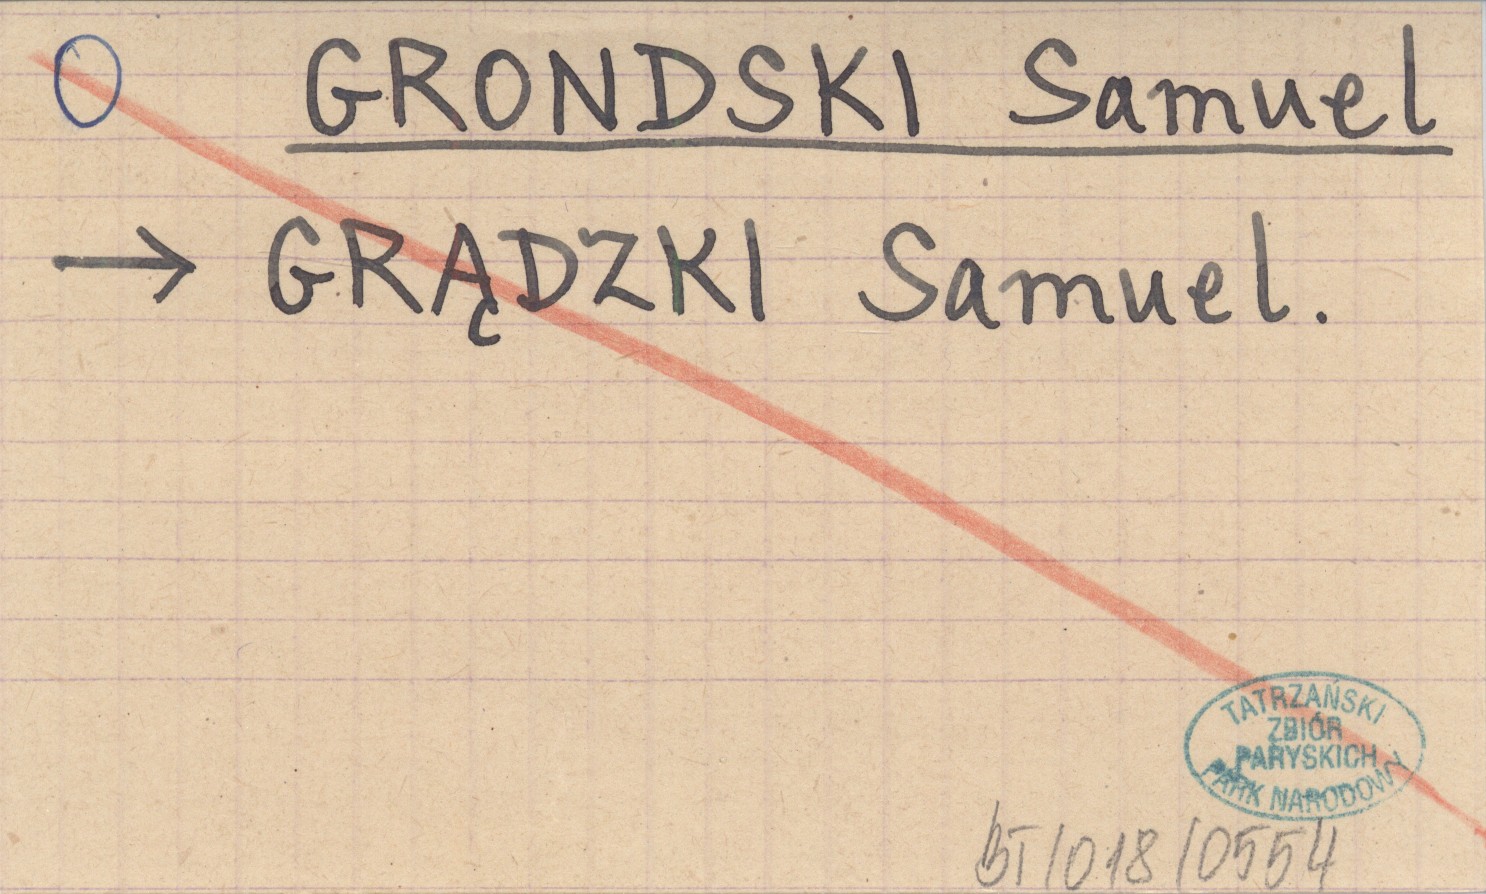 GRONDSKI Samuel
→ GRĄDZKI Samuel.
TATRZAŃSKI
ZBIÓR
PARYSKICH
PARK NARODOWY
BT/018/0554